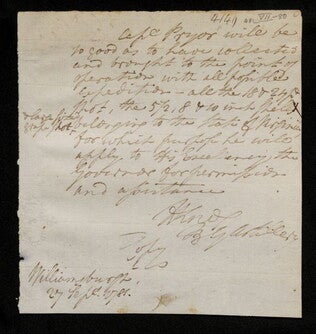 Capt. Pryor will be
so good as to have collected
and brought to the point of
operation with all possible
expedition - all the 18 & 24 lb
shot, the 5½, 8 & 10 inch shells
belonging to the State of Virginia
for which purpose he will
apply to His Excellency the
Governor for permission
and assistance
HKnox
B. G. Artillery
Copy
Williamsburgh
27 Sept. 1781.